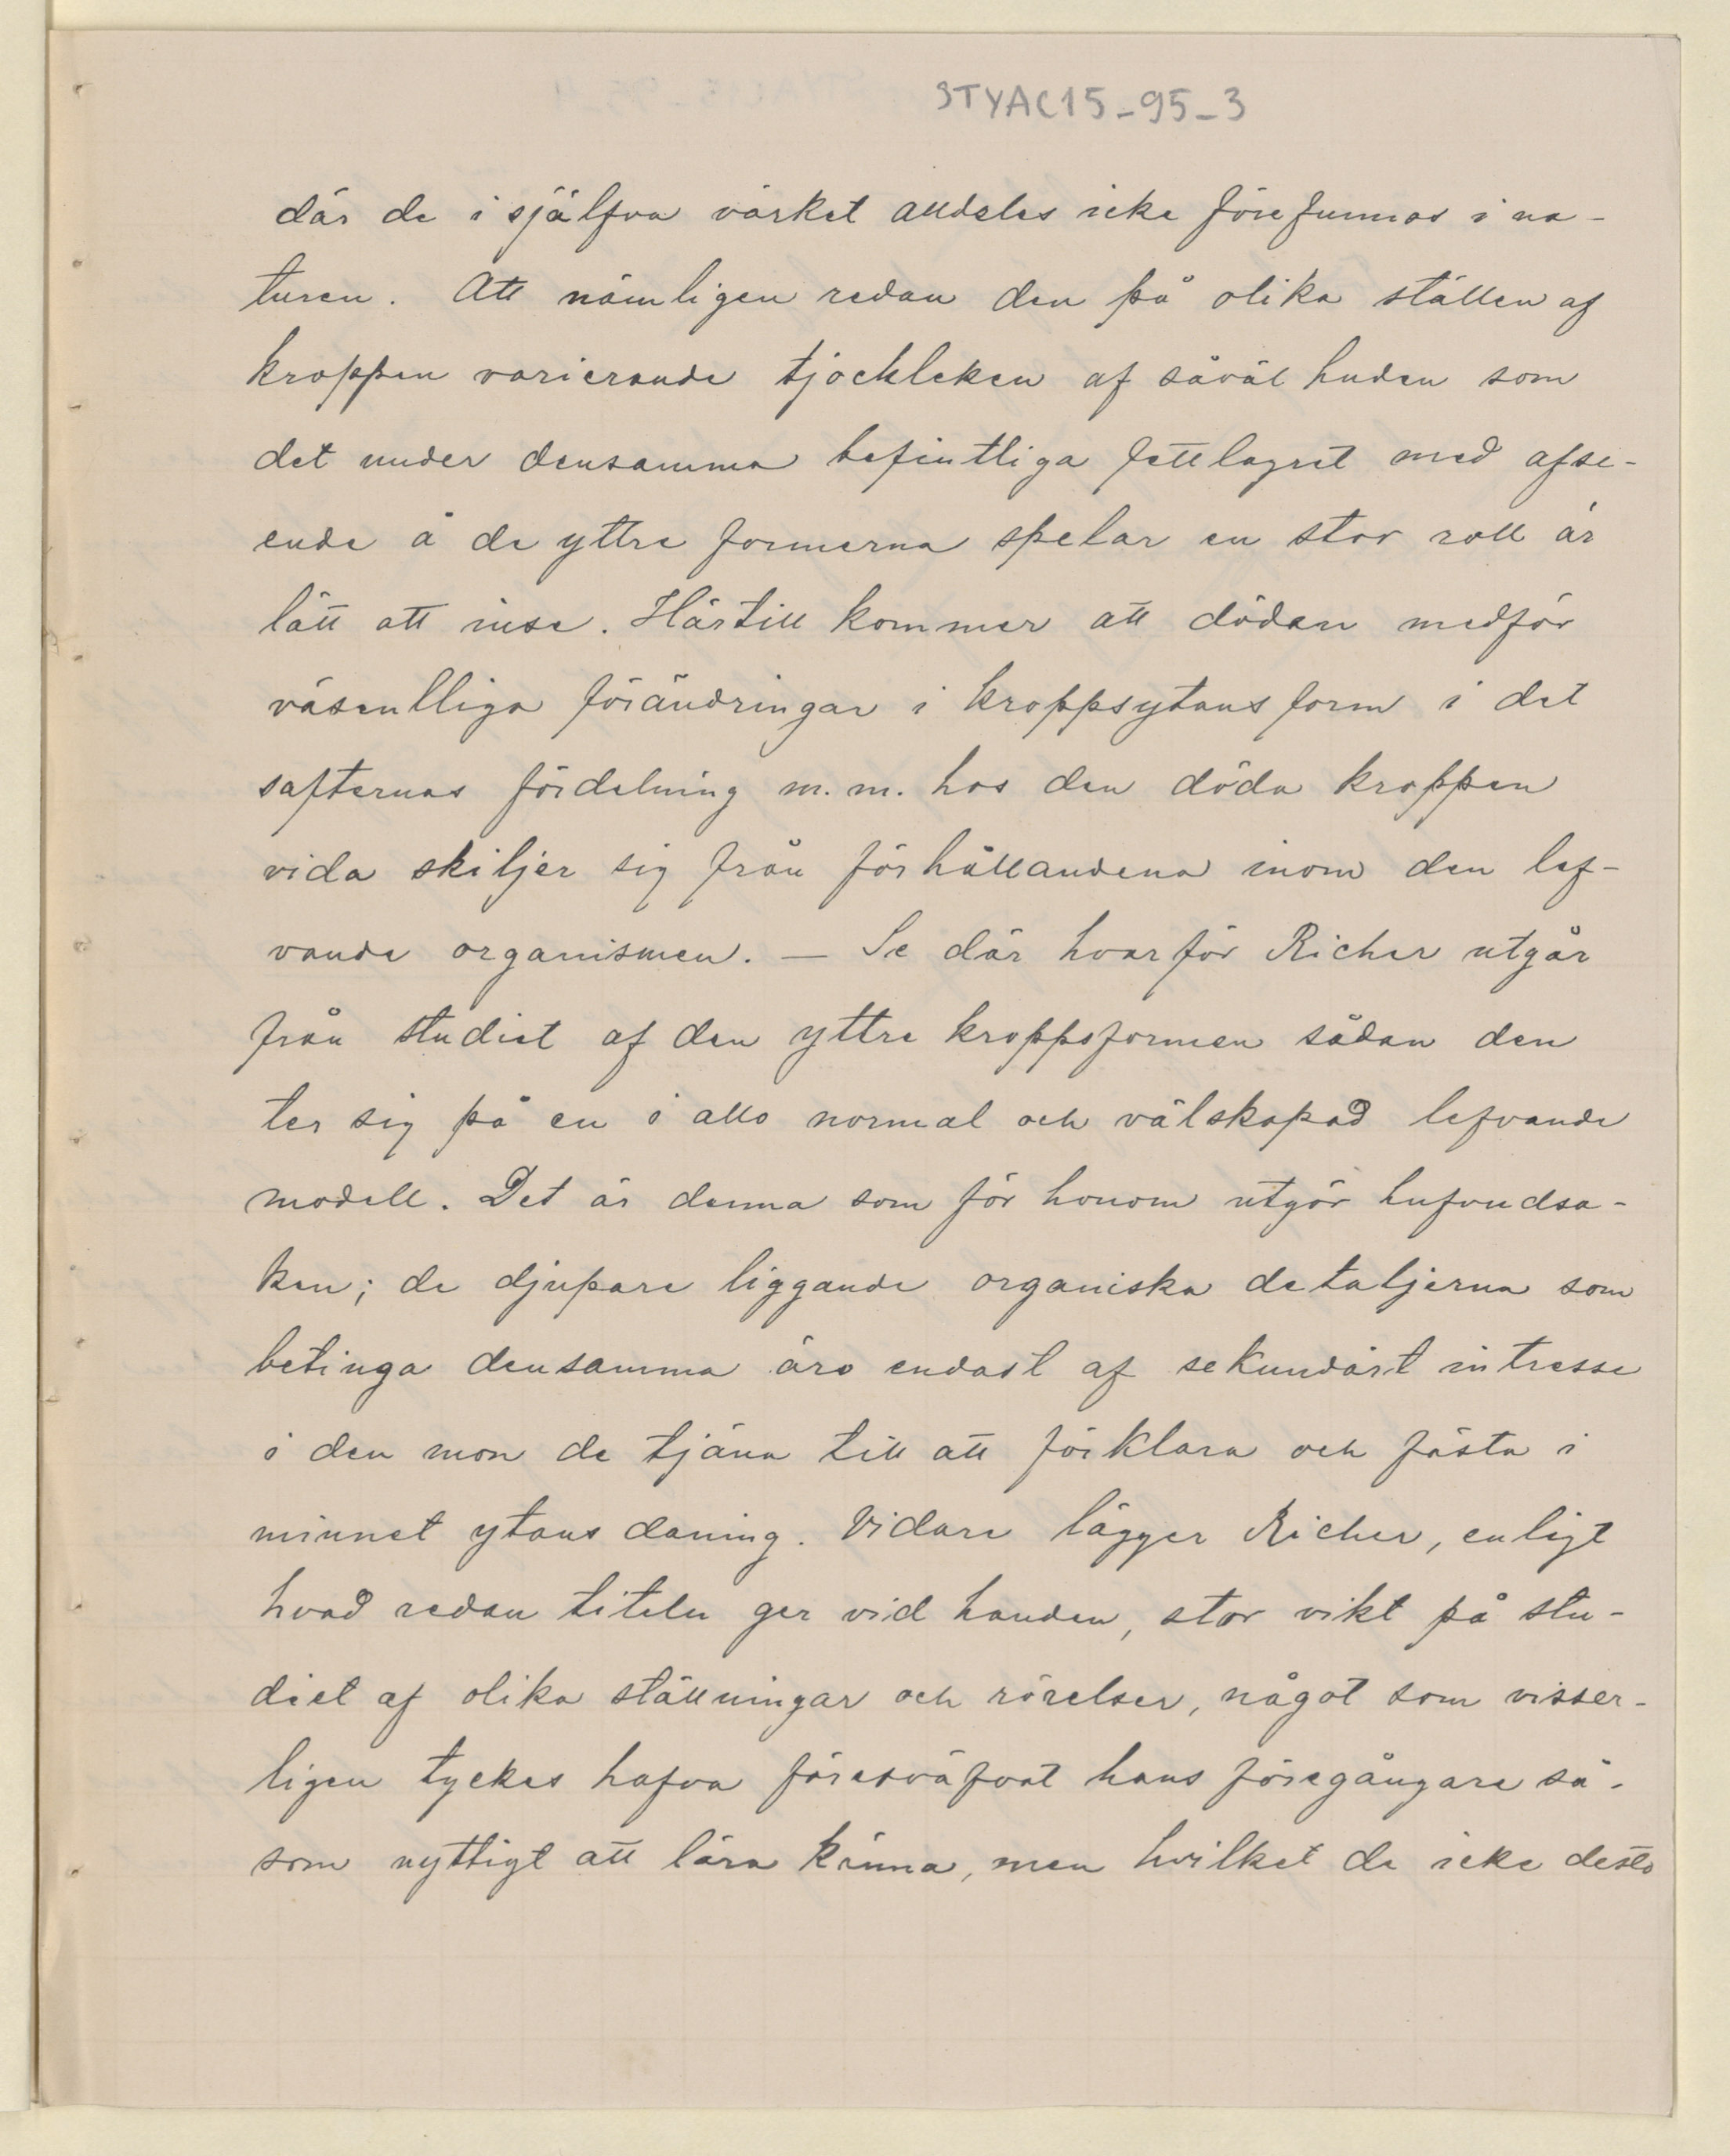 STYAC15-95-3
där de i själfva värket alldeles icke förefunnos i na-
turen. Att nämligen redan den på olika ställen af
kroppen varierande tjockleken af såväl huden som
det under densamma befintliga fettlagret med afse-
ende å de yttre formerna spelar en stor roll är
lätt att inse. Härtill kommer att döden medför
väsentliga förändringar i kroppsytans form i det
safternas fördelning m.m. hos den döda kroppen
vida skiljer sig från förhållandena inom den lef-
vande organismen. — Se där hvarför Richer utgår
från studiet af den yttre kroppsformen sådan den
ter sig på en i allo normal och välskapad lefvande
modell. Det är denna som för honom utgör hufvudsa-
ken; de djupare liggande organiska detaljerna som
betinga densamma äro endast af sekundärt intresse
i den mon de tjäna till att förklara och fästa i
minnet ytans daning. Vidare lägger Richer, enligt
hvad redan titeln ger vid handen, stor vikt på stu-
diet af olika ställningar och rörelser, något som visser-
ligen tyckes hafva föresväfvat hans föregångare så-
som nyttigt att lära känna, men hvilket de icke desto